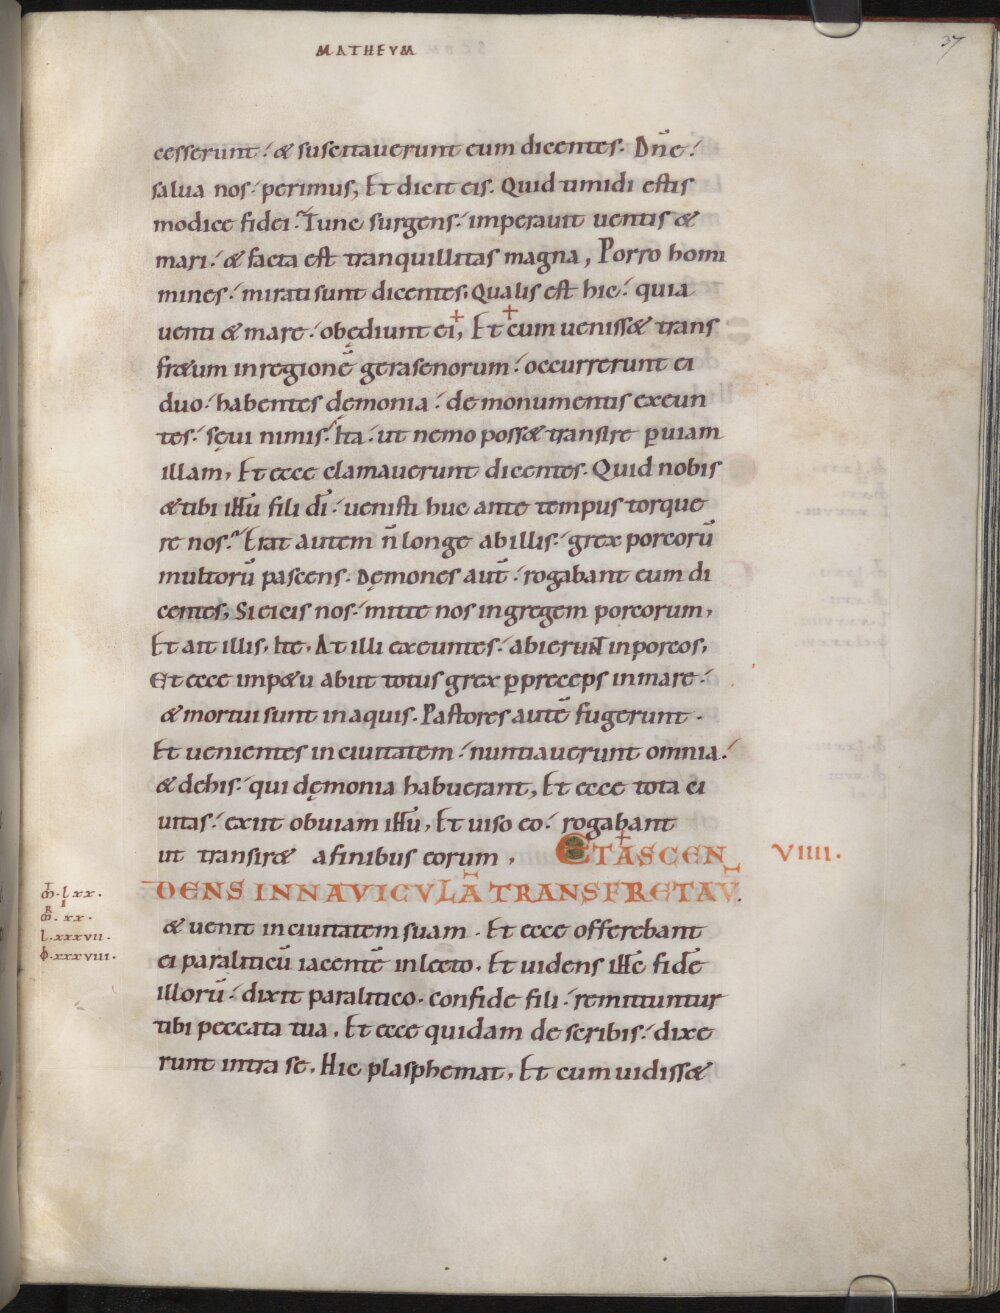 MATHEVM
37
cesserunt ⁊ & suscitauerunt eum dicentes. Dn̄e!
salua nos · perimus, Et dicit eis. Quid timidi estis
modice fidei. Tunc surgens · imperauit uentis &
mari · & facta est tranquillitas magna, Porro homi
mines · mirati sunt dicentes. Qualis est hic · quia
uenti & mare · obędiunt ei, Et cum uenisset trans
fretum in regionē gerasenorum · occurrerunt ei
duo · habentes dęmonia · de monumentis exeun
tes · sęui nimis. Ita · ut nemo posset transire ꝑ uiam
illam, Et ecce clamauerunt dicentes. Quid nobis
& tibi ih̄u fili dī · uenisti huc ante tempus torque
re nos. Erat autem n̄ longe ab illis · grex porcorū
multorū pascens. Dęmones aut̄ · rogabant eum di
centes, Si eicis nos · mitte nos in gregem porcorum,
Et ait illis. Ite. At illi exeuntes · abierunt in porcos,
Et ecce impetu abiit totus grex ꝑ pręceps in mare ·
& mortui sunt in aquis. Pastores autē fugerunt ·
Et uenientes in ciuitatem · nuntiauerunt omnia ·
& de his · qui dęmonia habuerant, Et ecce tota ci
uitas · exiit obuiam ih̄u, Et uiso eo · rogabant
ut transiret a finibus eorum, ETASCEN VIIII.
DENS IN NAVICVLĀ TRANSFRETAV̄.
m̄. lxx.
m̄. xx.
l. xxxvii.
ϕ. xxxviii.
& uenit in ciuitatem suam. Et ecce offerebant
ei paraliticū iacentē in lecto. Et uidens ih̄c fidē
illorū · dixit paralitico. confide fili · remittuntur
tibi peccata tua, Et ecce quidam de scribis · dixe
runt intra se. Hic plasphemat, Et cum uidisset